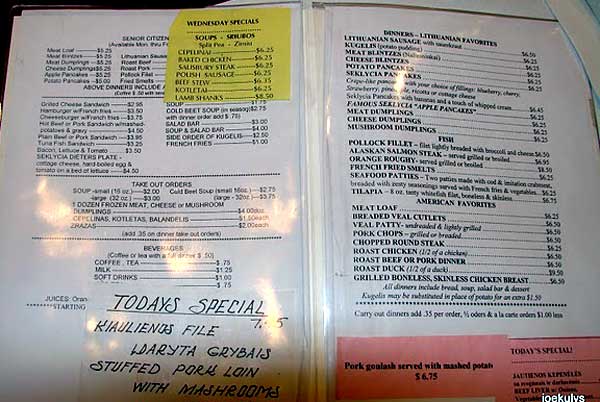 SENIOR CITIZEN
(Available Mon. thru F
Meat Loaf
Meat Blintzes
Meat Dumplings
Cheese Dumplings $5.25
Apple Pancakes
Potato Pancakes $5.00
Lithuanian
Roast Beef
Roast Pork
Pollock Filet
Fried Smelts
ABOVE DINNERS INCLUDE
WEDNESDAY SPECIALS
SOUPS - SRIUBOS
Split Pea - Zirniu
CEPELINAI $6.25
BAKED CHICKEN $6.25
SALISBURY STEAK $6.25
POLISH SAUSAGE $6.25
BEEF STEW $6.35
KOTLETAI $6.25
LAMB SHANKS $8.50
Grilled Cheese Sandwich $2.95
Hamburger w/French fries $3.50
Cheeseburger w/French fries $3.75
Hot Beef or Pork Sandwich w/mashed
potatoes & gravy $4.50
Plain Beef or Pork Sandwich $3.95
Tuna Fish Sandwich $3.25
Bacon, Lettuce & Tomato $3.50
SEKLYCIA DIETERS PLATE -
cottage cheese, hard boiled egg &
tomato on a bed of lettuce $4.50
SOUP $1.75
COLD BEET SOUP (in season) $2.75
with dinner order add $.75)
SALAD BAR $3.00
SOUP & SALAD BAR $4.00
SIDE ORDER OF KUGELIS $2.50
FRENCH FRIES $1.00
TAKE OUT ORDERS
SOUP -small (16 oz.) $2.00 Cold Beet Soup (small 16oz.) $2.75
-large (32 oz.) $3.00 (large - 32oz) $3.75
1 DOZEN FROZEN MEAT, CHEESE or MUSHROOM
DUMPLINGS $4.00doz.
CEPELINAS, KOTLETAS, BALANDELIS $1.50each
ZRAZAS $2.00each
(add .35 on dinner take out orders)
BEVERAGES
(Coffee or tea with a full dinner $ .50)
COFFEE , TEA $ .75
MILK $1.25
SOFT DRINKS $1.00
$ .75
JUICES: Oran
STARTING
TODAYS SPECIAL
KIAULIENOS FILE
ĮDARYTA GRYBAIS
STUFFED PORK LOIN
WITH MASHROOMS
DINNERS - LITHUANIAN FAVORITES
LITHUANIAN SAUSAGE with sauerkraut
KUGELIS (potato pudding)
MEAT BLINTZES (Naliesnikai) $6.50
CHEESE BLINTZES
POTATO PANCAKES
SEKLYCIA PANCAKES
Crepe-like pancakes with your choice of fillings: blueberry, cherry,
Strawberry, pineapple, ricotta or cottage cheese
Seklycia Pancakes with bananas and a touch of whipped cream $6.45
FAMOUS SEKLYCIA "APPLE PANCAKES"
MEAT DUMPLINGS
CHEESE DUMPLINGS
MUSHROOM DUMPLINGS
FISH
POLLOCK FILLET - filet lightly breaded with broccoli and cheese
ALASKAN SALMON STEAK - served grilled or broiled
ORANGE ROUGHY- served grilled or broiled
FRENCH FRIED SMELTS
SEAFOOD PATTIES - Two patties made with cod & imitation crabmeat,
breaded with zesty seasonings served with French fries & vegetables
TILAPIA - 8 oz. tasty whitefish filet, boneless & skinless
AMERICAN FAVORITES
MEAT LOAF
BREADED VEAL CUTLETS $6.25
VEAL PATTY- unbreaded & lightly grilled
PORK CHOPS - grilled or breaded
CHOPPED ROUND STEAK
ROAST CHICKEN (1/2 of a chicken)
ROAST BEEF OR PORK DINNER
ROAST DUCK (1/2 of a duck) $9.50
GRILLED BONELESS, SKINLESS CHICKEN BREAST $6.50
All dinners include bread, soup, salad bar & dessert
Kugelis may be substituted in place of potato for an extra $1.50
Carry out dinners add .35 per order, ½ orders & a la carte orders $1.00 less
Pork goulash served with mashed potato
$ 6.75
TODAY'S SPECIAL!
JAUTIENOS KEPENĖLĖS
BEEF LIVER w/ Onions,
joekulys